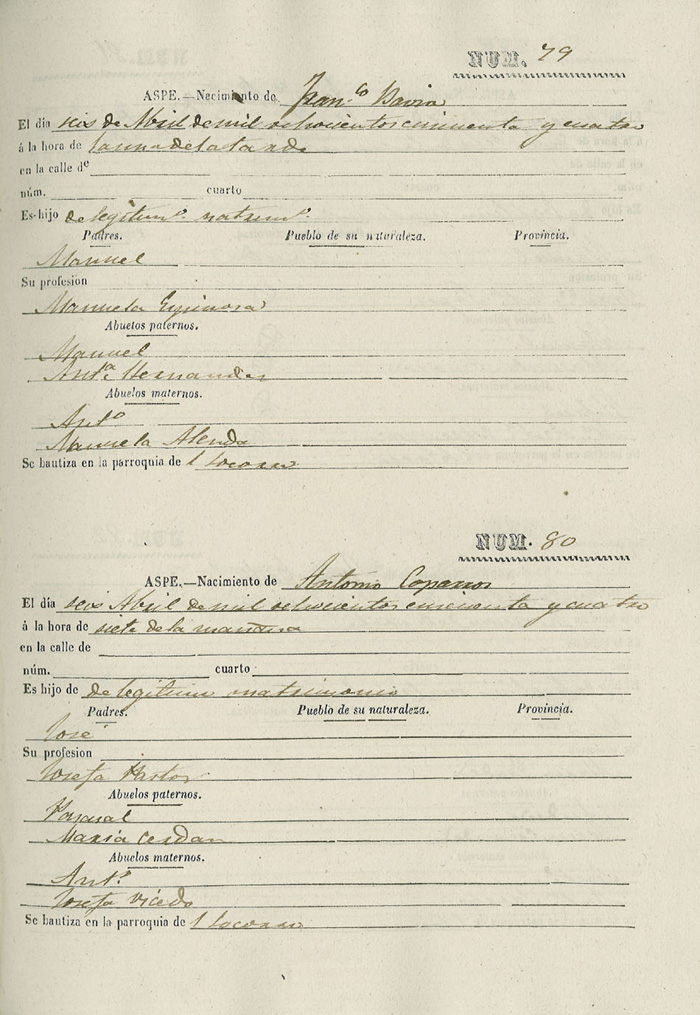 NUM. 79
ASPE.—Nacimiento de Fran.co Davia
El dia seis de Abril de mil ochocientos cincuenta y cuatro
á la hora de la una de la tarde
en la calle de
núm. cuarto
Es hijo de legitim.o matrim.o
Padres. Pueblo de su naturaleza. Provincia.
Manuel
Su profesion
Manuela Espinosa
Abuelos paternos.
Manuel
Ant.a Hernandez
Abuelos maternos.
Ant.o
Manuela Alenda
Se bautiza en la parroquia de l Socorro
NUM. 80
ASPE.—Nacimiento de Antonio Caparros
El dia seis Abril de mil ochocientos cincuenta y cuatro
á la hora de siete de la mañana
en la calle de
núm. cuarto
Es hijo de de legitimo matrimonio
Padres. Pueblo de su naturaleza. Provincia.
José
Su profesion
Josefa Pastor
Abuelos paternos.
Pascual
Maria Cerdan
Abuelos maternos.
Ant.o
Josefa Vicedo
Se bautiza en la parroquia de l Socorro